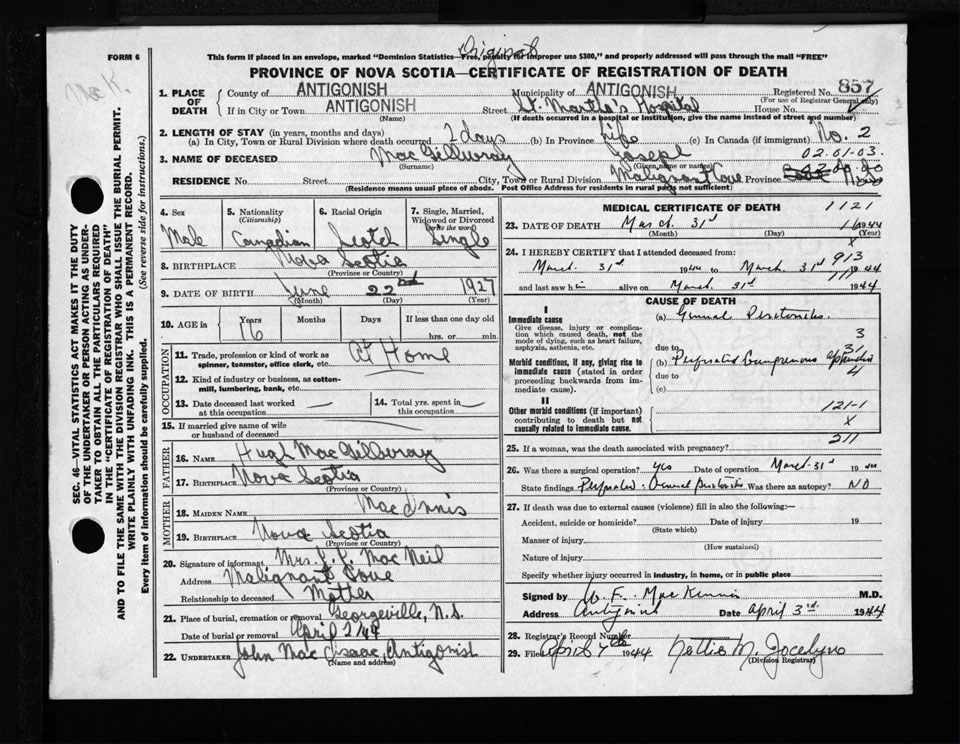 Original
FORM 6
This form if placed in an envelope, marked "Dominion Statistics—Free, penalty for improper use $300," and properly addressed will pass through the mail "FREE"
PROVINCE OF NOVA SCOTIA—CERTIFICATE OF REGISTRATION OF DEATH
Mac K.
1. PLACE OF DEATH
County of ANTIGONISH Municipality of ANTIGONISH Registered No. 857
(For use of Registrar General only)
If in City or Town ANTIGONISH Street St. Martha's Hospital House No.
(Name) (If death occurred in a hospital or institution, give the name instead of street and number)
2. LENGTH OF STAY (in years, months and days)
(a) In City, Town or Rural Division where death occurred 2 days (b) In Province Life (c) In Canada (if immigrant) No. 2
3. NAME OF DECEASED MacGillivray Joseph 02.01-03.
(Surname) (Given name or names)
RESIDENCE No. Street City, Town or Rural Division Malignant Cove Province
(Residence means usual place of abode. Post Office Address for residents in rural parts not sufficient)
SEC. 46—VITAL STATISTICS ACT MAKES IT THE DUTY
OF THE UNDERTAKER OR PERSON ACTING AS UNDER-
TAKER TO OBTAIN ALL THE PARTICULARS REQUIRED
IN THE "CERTIFICATE OF REGISTRATION OF DEATH"
AND TO FILE THE SAME WITH THE DIVISION REGISTRAR WHO SHALL ISSUE THE BURIAL PERMIT.
WRITE PLAINLY WITH UNFADING INK. THIS IS A PERMANENT RECORD.
Every item of information should be carefully supplied. (See reverse side for instructions.)
4. Sex 5. Nationality (Citizenship) 6. Racial Origin 7. Single, Married, Widowed or Divorced (write the word)
Male Canadian Scotch Single
8. BIRTHPLACE Nova Scotia
(Province or Country)
9. DATE OF BIRTH June 22nd 1927
(Month) (Day) (Year)
10. AGE in Years Months Days If less than one day old
16 hrs. or min.
OCCUPATION
11. Trade, profession or kind of work as spinner, teamster, office clerk, etc. At Home
12. Kind of industry or business, as cotton-mill, lumbering, bank, etc.
13. Date deceased last worked at this occupation —
14. Total yrs. spent in this occupation —
15. If married give name of wife or husband of deceased
FATHER
16. NAME Hugh MacGillivray
17. BIRTHPLACE Nova Scotia
(Province or Country)
MOTHER
18. MAIDEN NAME MacInnis
19. BIRTHPLACE Nova Scotia
(Province or Country)
20. Signature of informant Mrs. J. J. MacNeil
Address Malignant Cove
Relationship to deceased Mother
21. Place of burial, cremation or removal Georgeville, N.S.
Date of burial or removal April 2/44
22. UNDERTAKER John MacIsaac, Antigonish
(Name and address)
MEDICAL CERTIFICATE OF DEATH 1121
23. DATE OF DEATH March 31st 1944
(Month) (Day) (Year)
24. I HEREBY CERTIFY that I attended deceased from: 913
March 31st 1944 to March 31st 1944
and last saw him alive on March 31st 1944
CAUSE OF DEATH
I
Immediate cause (a) General Peritonitis
Give disease, injury or complication which caused death, not the mode of dying, such as heart failure, asphyxia, asthenia, etc.
due to 3
Morbid conditions, if any, giving rise to immediate cause (stated in order proceeding backwards from immediate cause).
(b) Perforated Gangrenous appendix
due to 4
(c)
II
Other morbid conditions (if important) contributing to death but not causally related to immediate cause. 121-1
X
211
25. If a woman, was the death associated with pregnancy?
26. Was there a surgical operation? yes Date of operation March 31st 1944
State findings Perforated - General Peritonitis Was there an autopsy? NO
27. If death was due to external causes (violence) fill in also the following:—
Accident, suicide or homicide? Date of injury 19
(State which)
Manner of injury
(How sustained)
Nature of injury
Specify whether injury occurred in industry, in home, or in public place
Signed by W. F. MacKinnon M.D.
Address Antigonish Date April 3rd 1944
28. Registrar's Record Number
29. Filed April 7th 1944 Nettie M. Jocelyn
(Division Registrar)